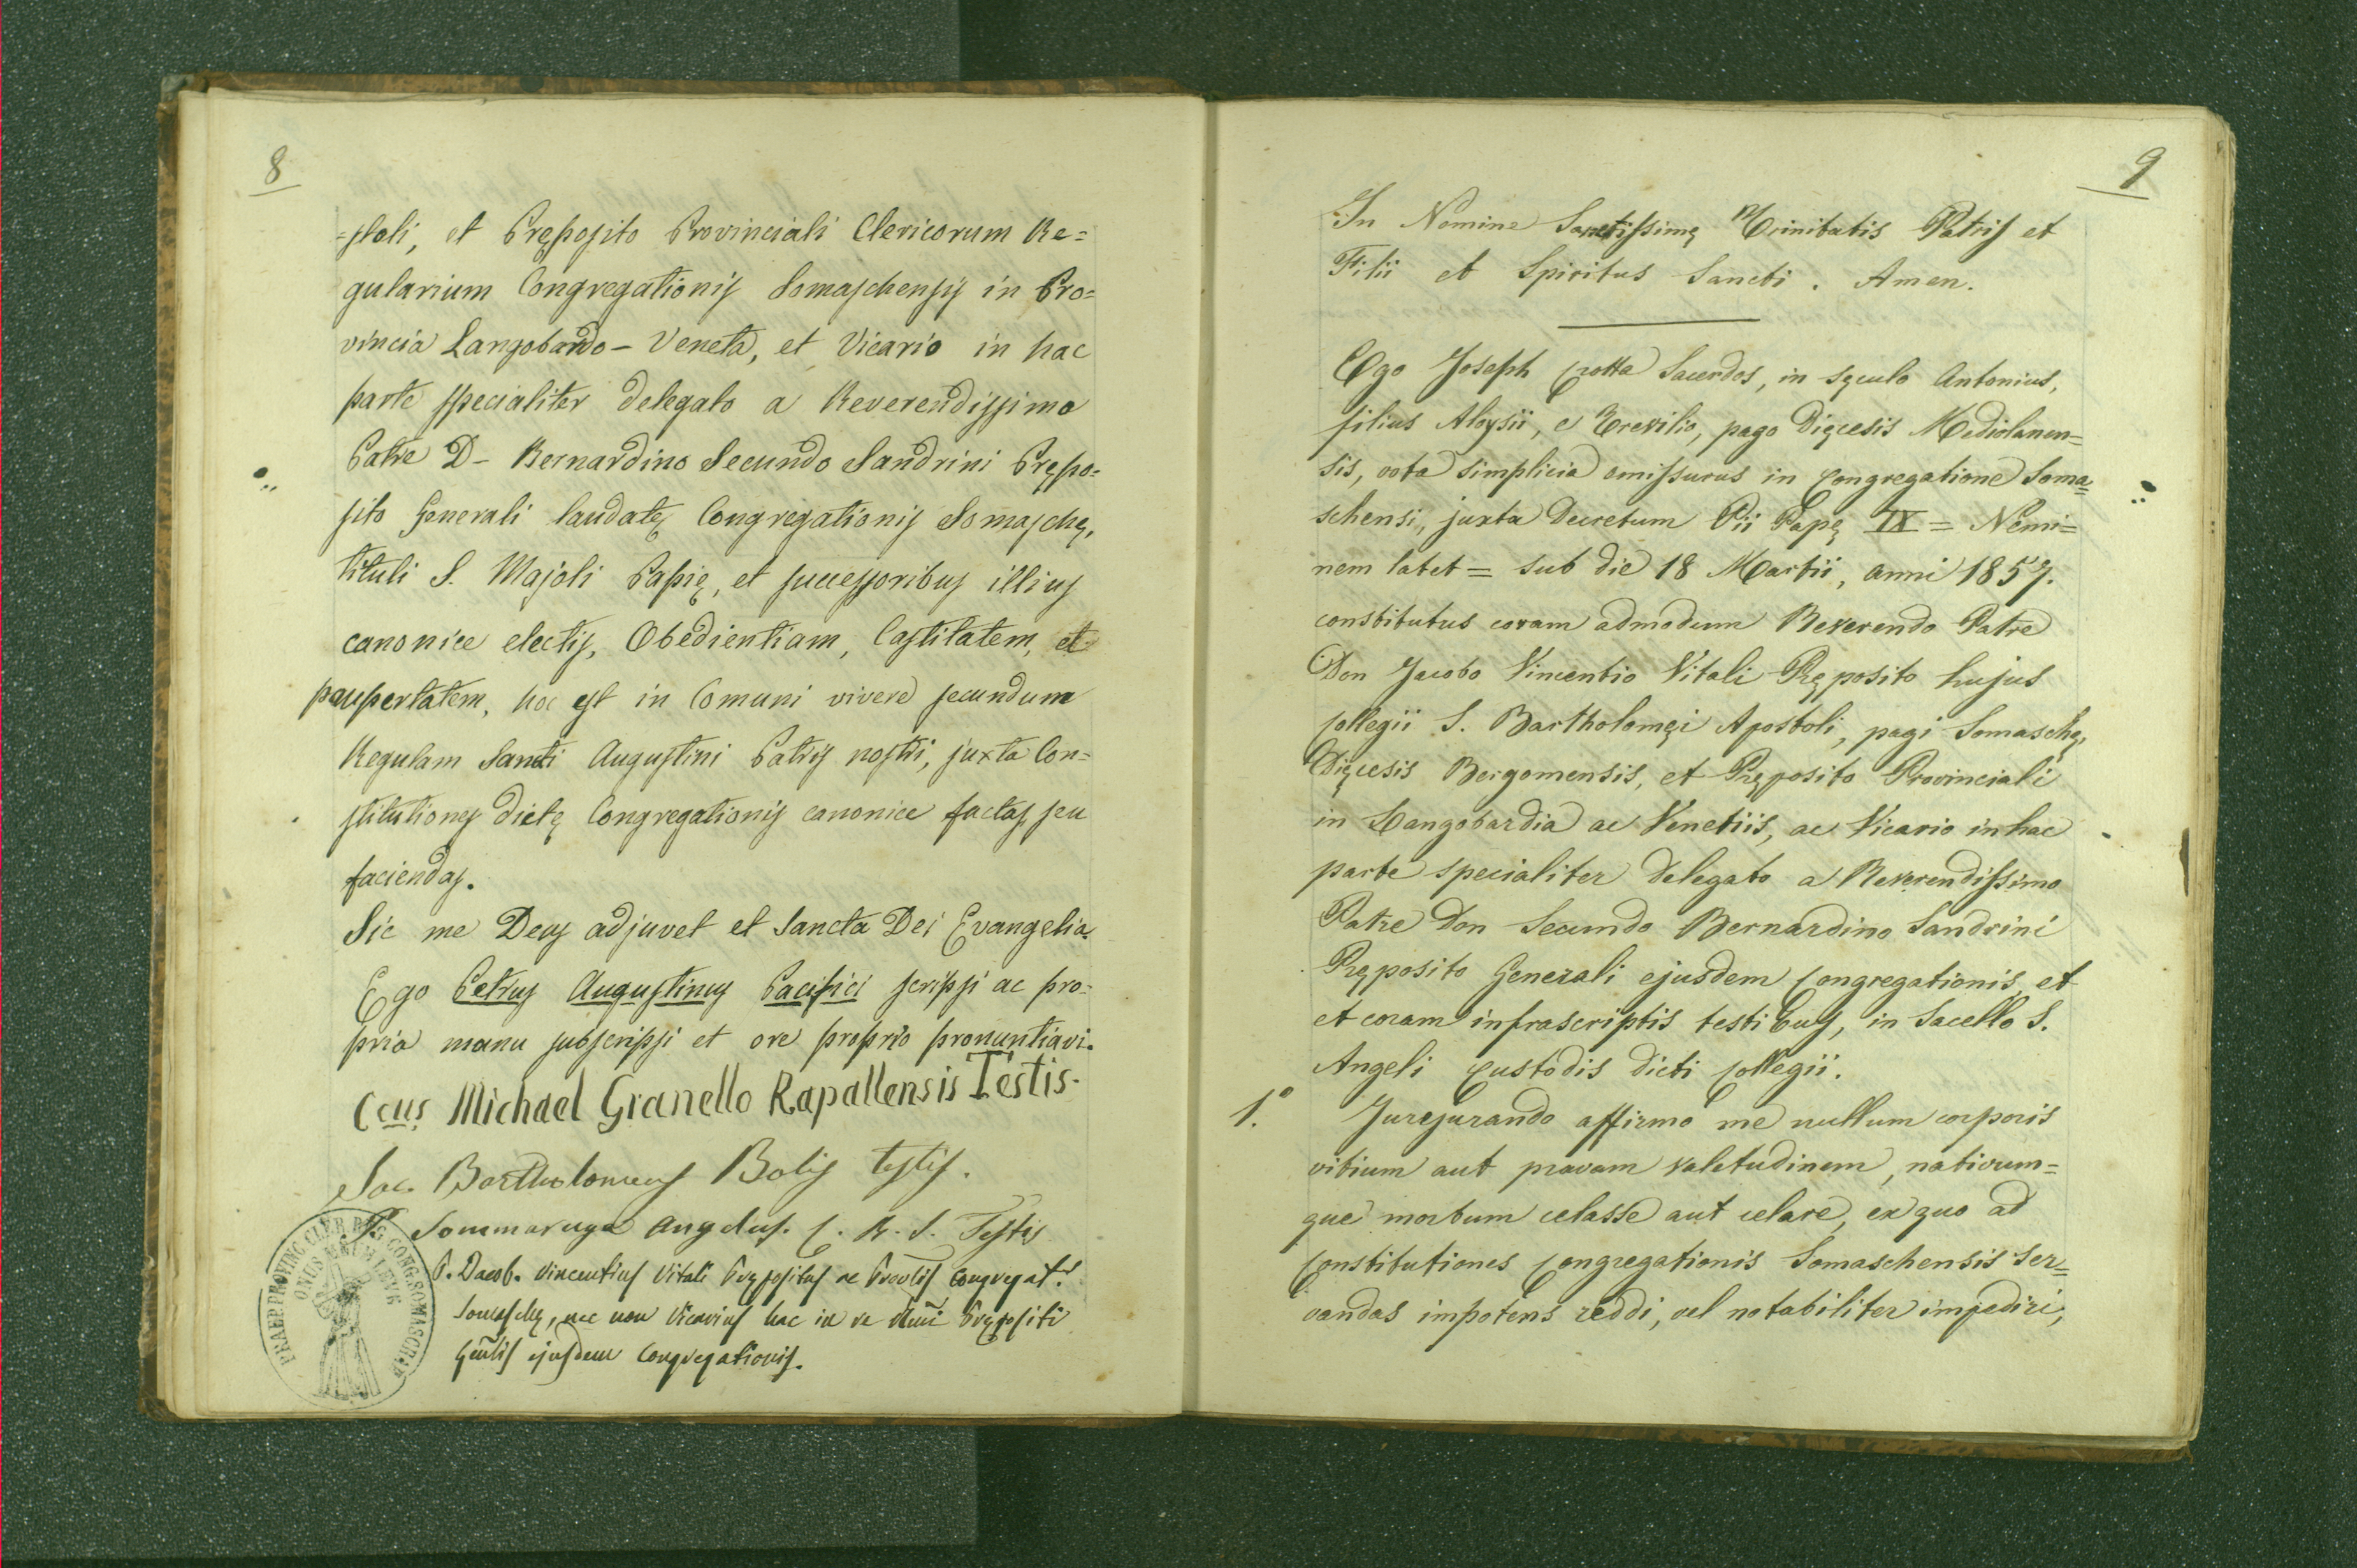 8
=stoli, et Pręposito Provinciali Clericorum Re=
gularium Congregationis Somaschensis in Pro=
vincia Langobardo - Veneta, et Vicario in hac
parte specialiter delegato a Reverendissimo
Patre D - Bernardino Secundo Sandrini Prępo=
sito Generali laudatę Congregationis Somaschę,
tituli S. Majoli Papię, et successoribus illius
canonice electis, Obedientiam, Castitatem, et
paupertatem, hoc est in Comuni vivere secundum
Regulam Sancti Augustini Patris nostri, juxta Con=
stitutiones dictę Congregationis canonice factas, seu
faciendas.
Sic me Deus adjuvet et Sancta Dei Evangelia.
Ego Petrus Augustinus Pacifici scripsi ac pro=
pria manu subscripsi et ore proprio pronuntiavi.
Ccus Michael Granello Rapallensis Testis.
Sac. Bartholomeus Bolis testis.
P. Sommaruga Angelus. C. R. S. Testis
P. Jacob. Vincentius Vitali Prępositus ac Provlis Congregat.s
Somaschę, nec non Vicarius hac in re Rmi Prępositi
Gnlis ejusdem Congregationis.
PRAEP. PROVINC. CLER. REG. CONG. SOMASCHAE
ONUS MEUM LEVE
9
In Nomine Sanctissimę Trinitatis Patris et
Filii et Spiritus Sancti. Amen.
Ego Joseph Crotta Sacerdos, in sęculo Antonius,
filius Aloysii, e Trevilio, pago Dięcesis Mediolanen=
sis, vota simplicia emissurus in Congregatione Soma=
schensi, juxta Decretum Pii Papę IX = Nemi=
nem latet = sub die 18 Martii, anni 1857.
constitutus coram admodum Reverendo Patre
Don Jacobo Vincentio Vitali Pręposito hujus
Collegii S. Bartholomęi Apostoli, pagi Somaschę,
Dięcesis Bergomensis, et Pręposito Provinciali
in Langobardia ac Venetiis, ac Vicario in hac
parte specialiter delegato a Reverendissimo
Patre Don Secundo Bernardino Sandrini
Pręposito Generali ejusdem Congregationis, et
et coram infrascriptis testibus, in Sacello S.
Angeli Custodis dicti Collegii.
1.° Jurejurando affirmo me nullum corporis
vitium aut pravam valetudinem, nativum=
que morbum celasse aut celare, ex quo ad
Constitutiones Congregationis Somaschensis ser=
vandas impotens reddi, vel notabiliter impediri,